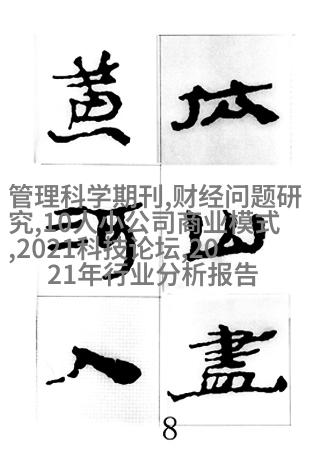 依山盡
黄河入
管理科学期刊,财经问题研
究,10人小公司商业模式
,2021科技论坛,20
21年行业分析报告
8